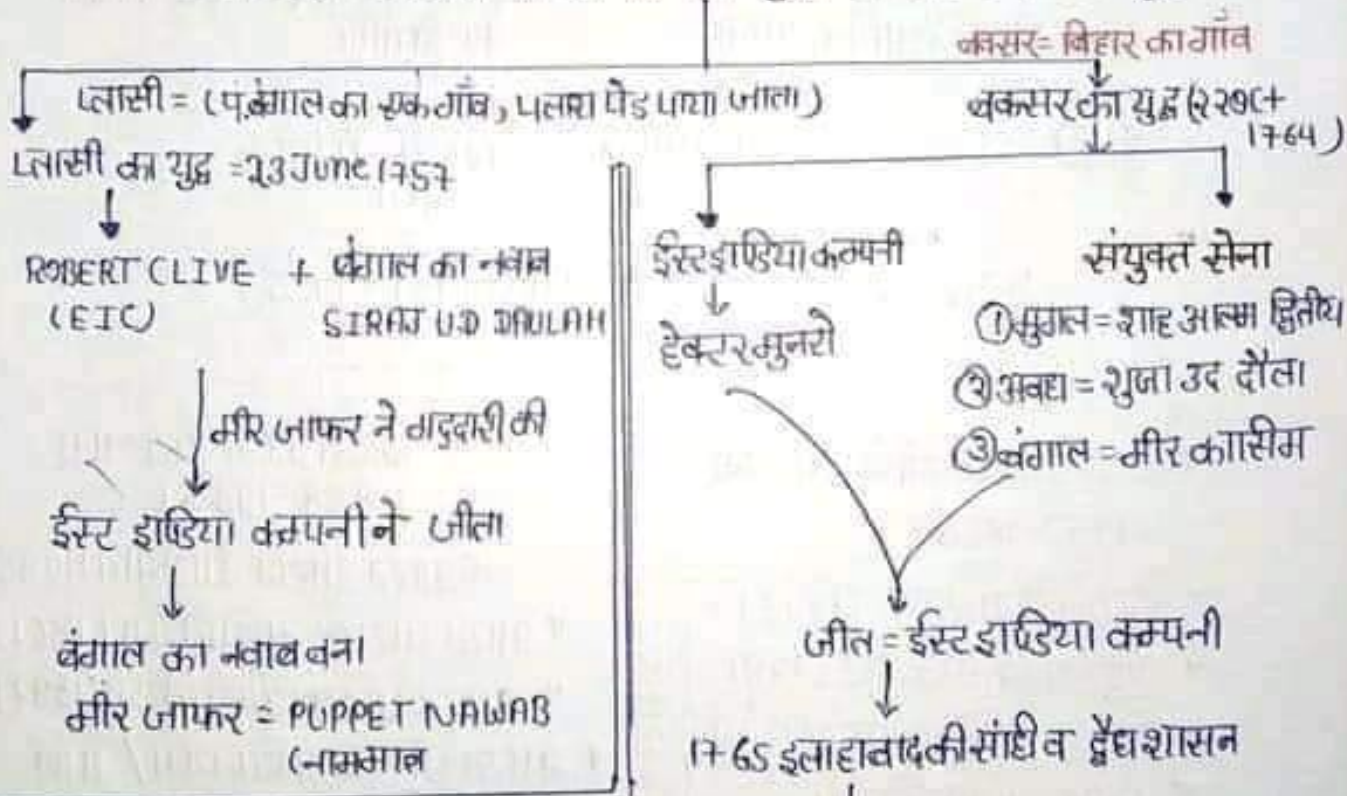 बक्सर= बिहार का गाँव
प्लासी = (प.बंगाल का एक गाँव, पलाश पेड पाया जाता)
बक्सर का युद्ध (22 oct
1764)
प्लासी का युद्ध = 23 June 1757
ROBERT CLIVE + बंगाल का नवाब
(EIC) SIRAJ UD DAULAH
मीर जाफर ने गद्दारी की
ईस्ट इण्डिया कम्पनी ने जीता
बंगाल का नवाब बना
मीर जाफर = PUPPET NAWAB
(नाममात्र
ईस्ट इण्डिया कम्पनी
हेक्टर मुनरो
संयुक्त सेना
① मुगल = शाह आलम द्वितीय
② अवध = शुजा उद दौला
③ बंगाल = मीर कासीम
जीत = ईस्ट इण्डिया कम्पनी
1765 इलाहाबाद की संधी व द्वैध शासन